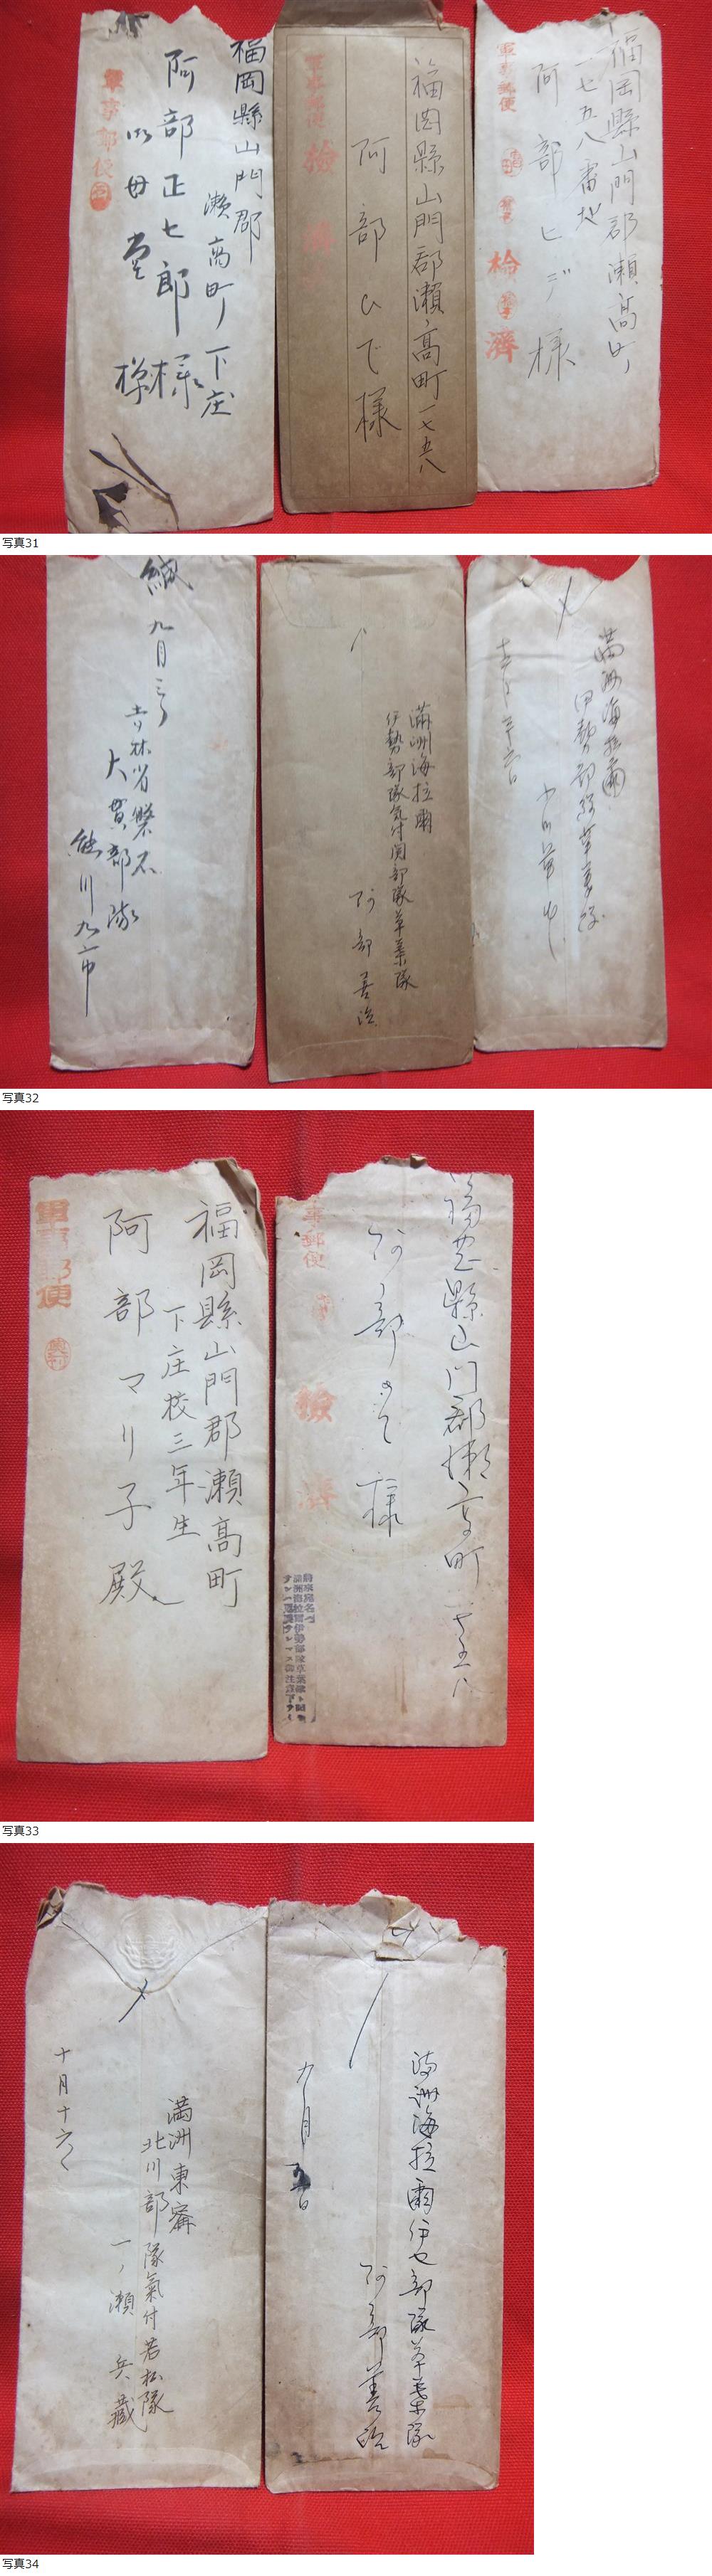 福岡縣山門郡
瀬高町下庄
阿部正七郎様
御母堂様
軍事郵便
福岡縣山門郡瀬高町一七五八
阿部ひで様
軍事郵便
検
済
福岡縣山門郡瀬高町
一七五八番地
阿部ヒデ様
軍事郵便
検
済
写真31
緘
九月三日
吉林省磐石
大貫部隊
満洲海拉爾
伊勢部隊気付関部隊草葉隊
阿部善治
満洲海拉爾
伊勢部隊草葉隊
写真32
福岡縣山門郡瀬高町
下庄校三年生
阿部マリ子殿
軍事郵便
福岡縣山門郡瀬高町一七五八
阿部ひで様
事郵便
検
済
写真33
満洲東寧
北川部隊氣付若松隊
一ノ瀬兵藏
十月十六日
満洲海拉爾伊セ部隊草葉隊
阿部善治
九月五日
写真34